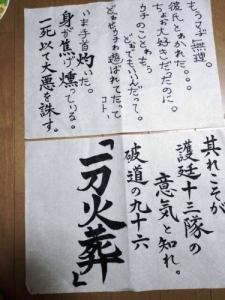 もうマヂ無理。
彼氏とわかれた。。。
ちょお大好きだったのに。
ウチのことゎもぅ
どぉでもいいんだって。
どぉせウチゎ遊ばれてたってコト、
いま手首灼いた。
身が焦げ燻っている。
一死以て大悪を誅す。
其れこそが
護廷十三隊の
意気と知れ。
破道の九十六
「一刀火葬」